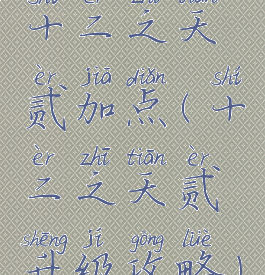 shí èr zhī tiān
十二之天
èr jiā diǎn shí
贰加点(十
èr zhī tiān èr
二之天贰
shēng jí gōng lüè
升级攻略)